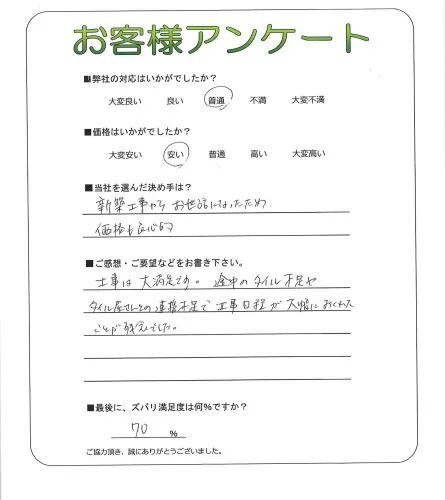 お客様アンケート
■弊社の対応はいかがでしたか？
大変良い 良い 普通 不満 大変不満
■価格はいかがでしたか？
大変安い 安い 普通 高い 大変高い
■当社を選んだ決め手は？
新築工事からお世話になったため
価格も良心的
■ご感想・ご要望などをお書き下さい。
工事は大満足です。途中のタイル不足や
タイル屋さんとの連携不足で工事日程が大幅におくれた
ことが残念でした。
■最後に、ズバリ満足度は何％ですか？
70 %
ご協力頂き、誠にありがとうございました。